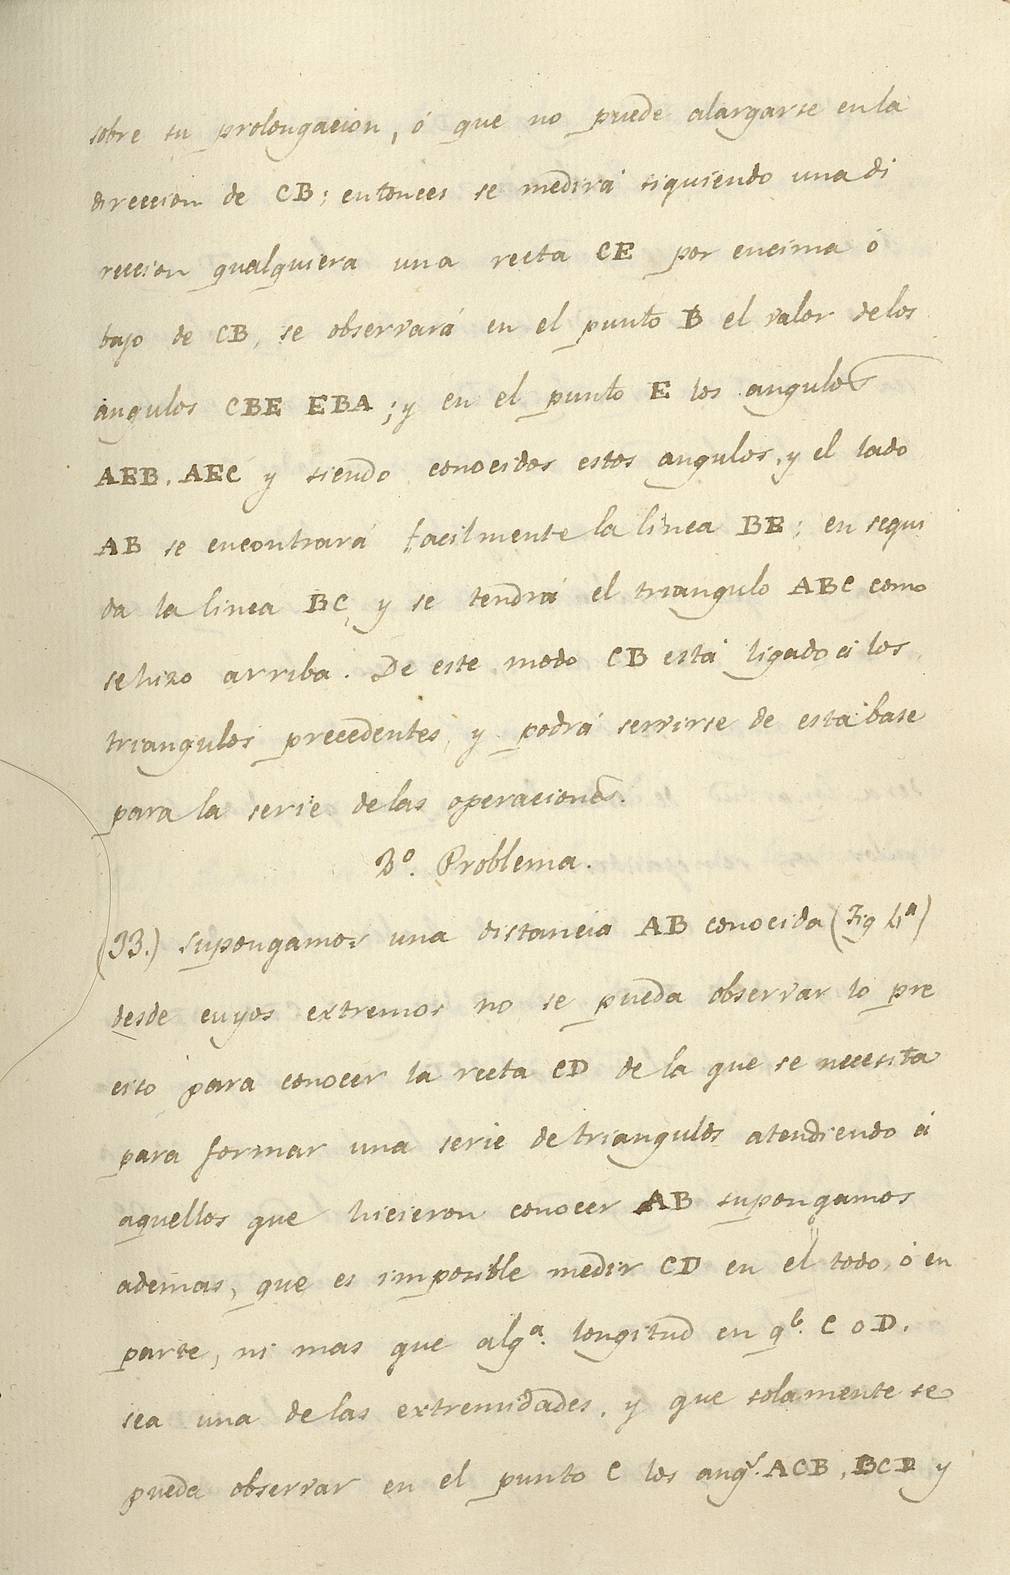 sobre su prolongacion, ó que no puede alargarse en la
direccion de CB; entonces se medirá siguiendo una di
reccion qualquiera una recta CE por encima ó
bajo de CB, se observará en el punto B el valor de los
angulos CBE EBA; y en el punto E los angulos
AEB, AEC y siendo conocidos estos angulos, y el lado
AB se encontrará facilmente la linea BE; en segui
da la linea BC, y se tendrá el triangulo ABC como
se hizo arriba. De este modo CB está ligado á los
triangulos precedentes, y podrá servirse de esta base
para la serie de las operaciones.
3º. Problema.
(33.) supongamos una distancia AB conocida (Fig 4ª)
desde cuyos extremos no se pueda observar lo pre
ciso para conocer la recta CD de la que se necesita
para formar una serie de triangulos atendiendo á
aquellos que hicieron conocer AB supongamos
ademas, que es imposible medir CD en el todo, ó en
parte, ni mas que algª. longitud en qᵉ. C o D.
sea una de las extremidades, y que solamente se
pueda observar en el punto C los angˢ. ACB, BCD y